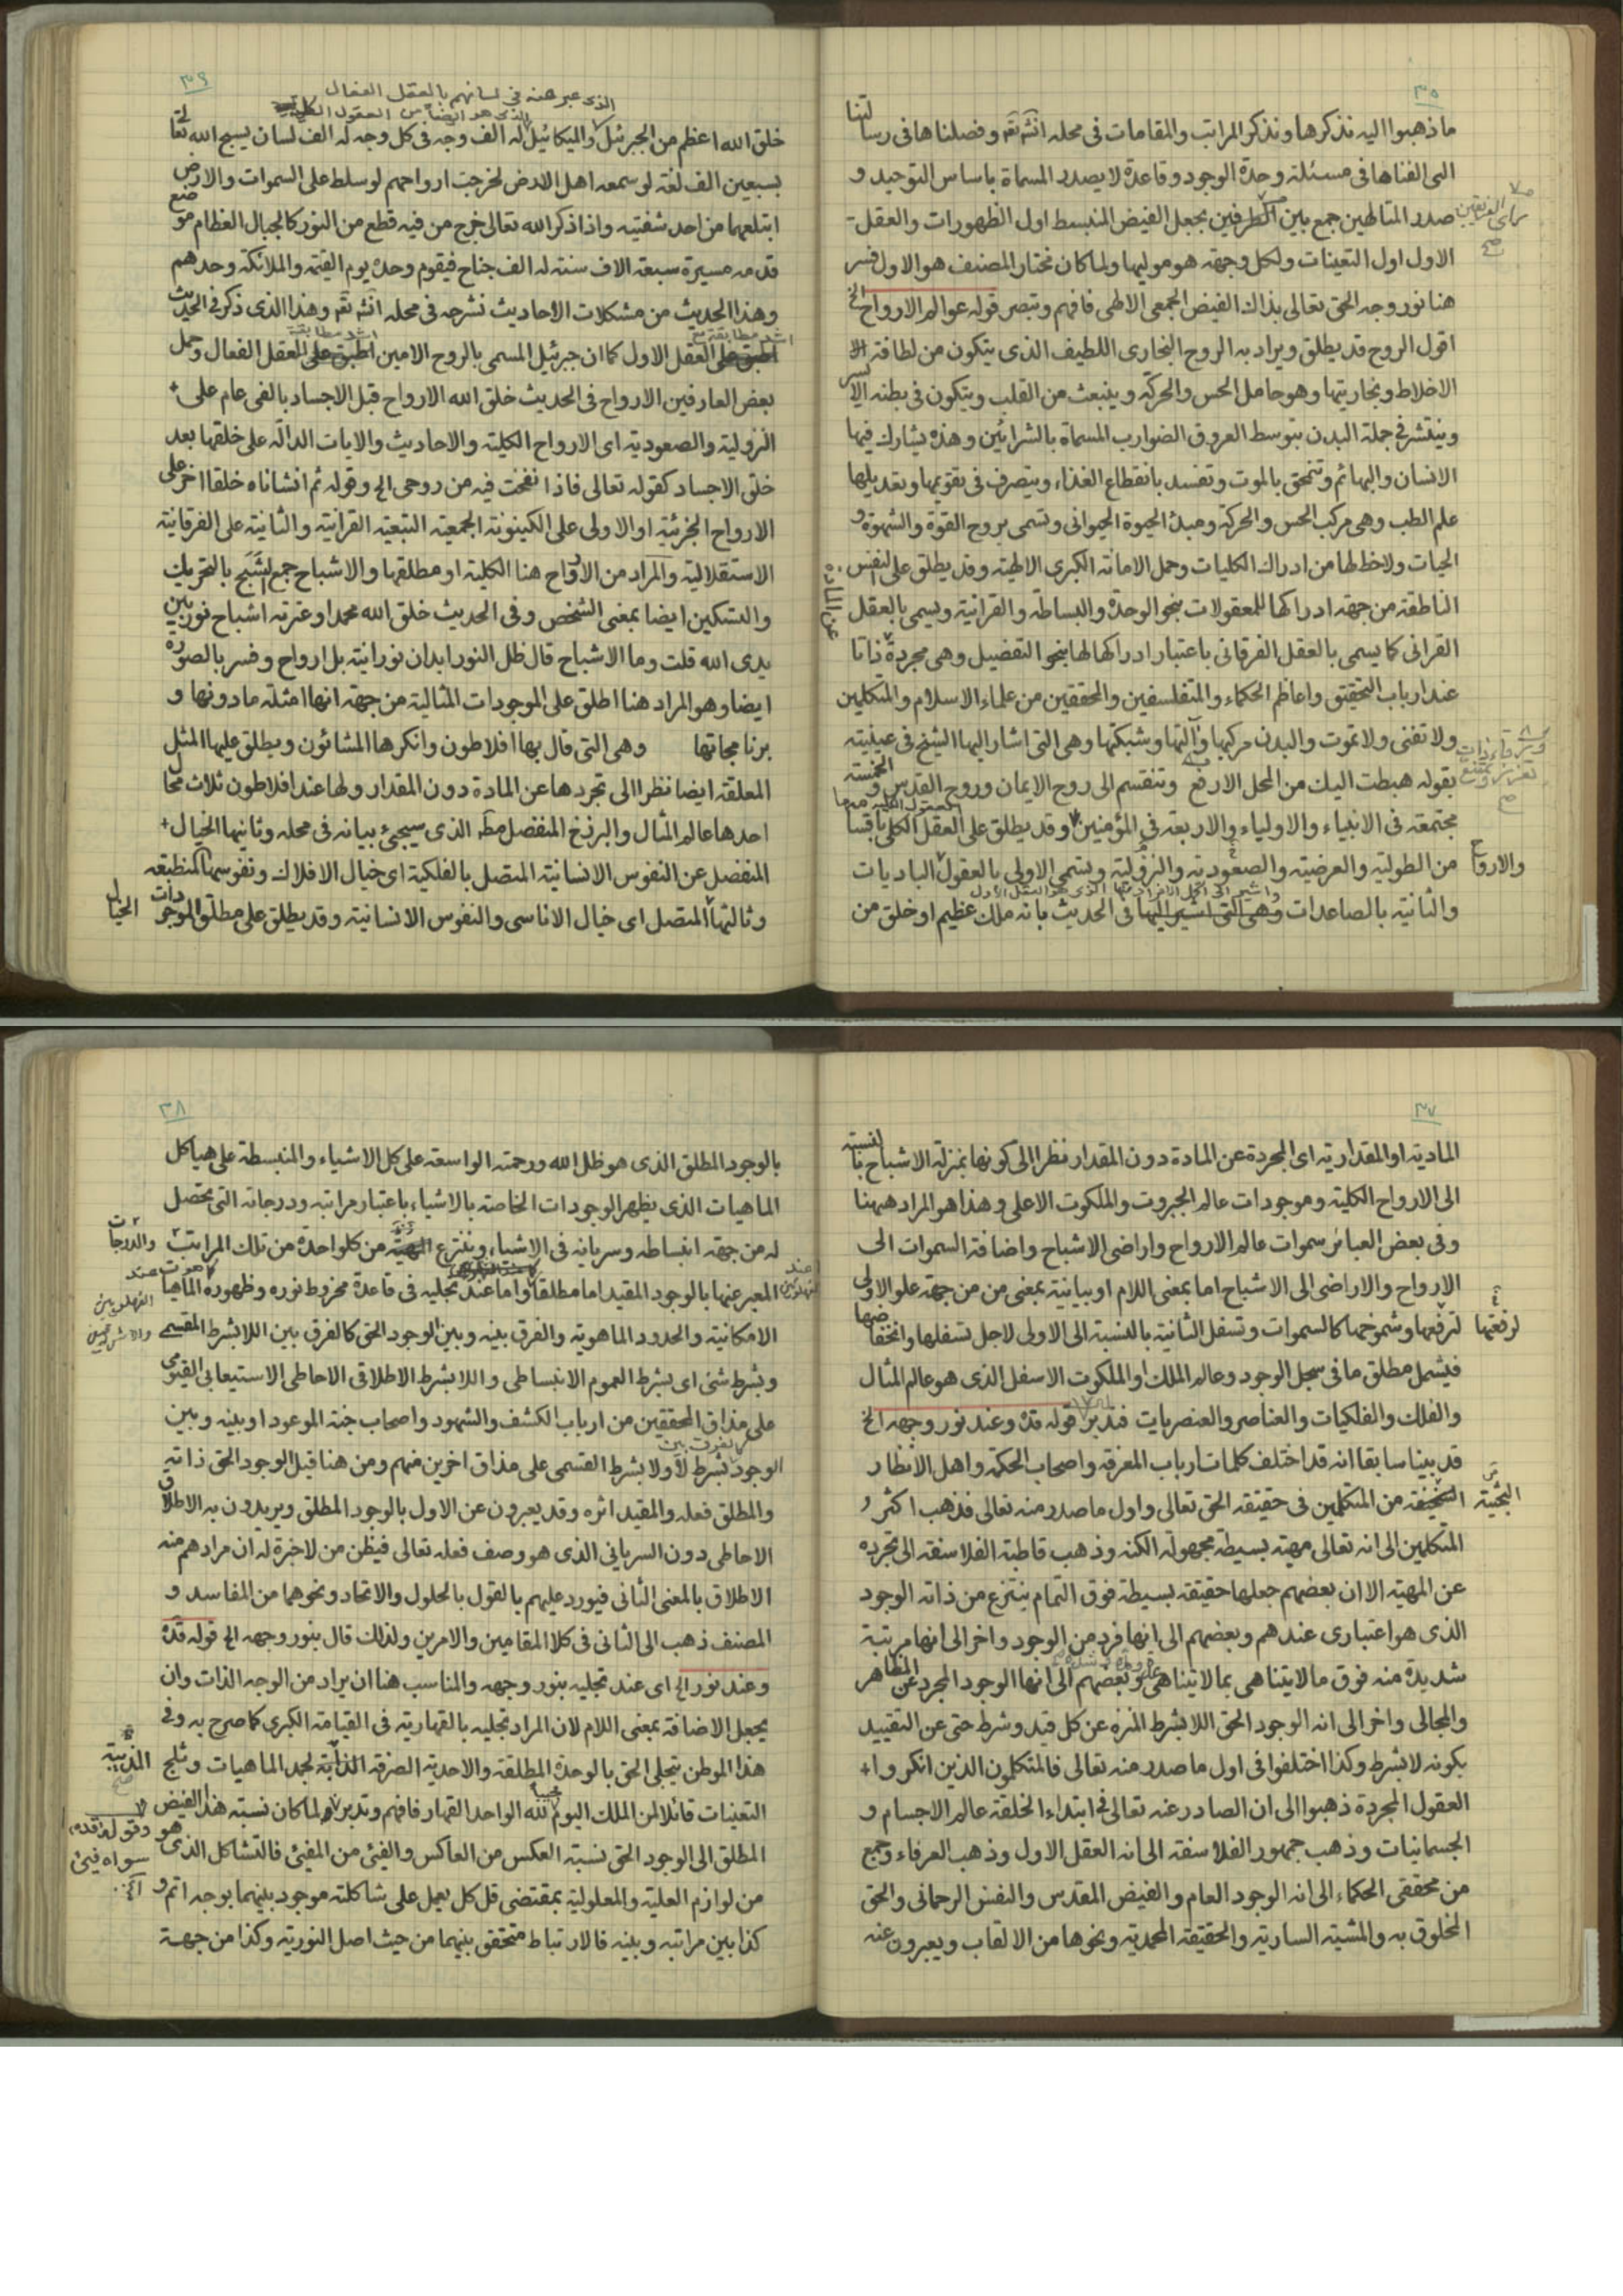 ٣٥
ما ذهبوا اليه نذكرها ونذكر المراتب والمقامات فى محله انشه تقه وفصلناها فى رسالتنا
التى الفناها فى مسئلة وحدة الوجود وقاعدة لا يصدر المسماة باساس التوحيد و
صدر المتالهين جمع بين الطرفين بجعل الفيض المنبسط اول الظهورات والعقل
الاول اول التعينات ولكل وجهة هو موليها ولما كان مختار المصنف هو الاول فسر
هنا نور وجه الحق تعالى بذاك الفيض الجمعى الالهى فافهم وتبصر قوله عوالم الارواح الخ
اقول الروح قد يطلق ويراد به الروح البخارى اللطيف الذى يتكون من لطافة
الاخلاط وبخاريتها وهو حامل الحس والحركة وينبعث من القلب ويتكون فى بطنه الايسر
وينتشر فى جملة البدن بتوسط العروق الضوارب المسماة بالشرائين وهذه يشارك فيها
الانسان والبهائم وتنمحق بالموت وتفسد بانقطاع الغذاء ويتصرف فى تقويمها وتعديلها
علم الطب وهى مركب الحس والحركة ومبدء الحيوة الحيوانى وتسمى بروح القوة والشهوة و
الحيات ولا خط لها من ادراك الكليات وحمل الامانة الكبرى الالهية وقد يطلق على النفس
الناطقة من جهة ادراكها للمعقولات بنحو الوحدة والبساطة والقرانية ويسمى بالعقل
القرانى كما يسمى بالعقل الفرقانى باعتبار ادراكها لها بنحو التفصيل وهى مجردة ذاتا
عن المادة
عند ارباب التحقيق واعاظم الحكماء والمتفلسفين والمحققين من علماء الاسلام والمتكلمين
ولا تفنى ولا تموت والبدن مركبها وآلتها وشبكتها وهى التى اشار اليها الشيخ فى عينيته
بقوله هبطت اليك من المحل الارفع وتنقسم الى روح الايمان وروح القدس و الخمسة
مجتمعة فى الانبياء والاولياء والاربعة فى المؤمنين وقد يطلق على العقل الكلى باقسا
والارواح من الطولية والعرضية والصعودية والنزولية وتسمى الاولى بالعقول الباديات
والثانية بالصاعدات وهى التى اشير اليها فى الحديث بانه ملك عظيم او خلق من
٣٦
الذى عبر عنه فى لسانهم بالعقل الفعال
خلق الله اعظم من الجبرئيل والميكائيل له الف وجه فى كل وجه له الف لسان يسبح الله تعا
بسبعين الف لغة لو سمعه اهل الارض لخرجت ارواحهم لو سلط على السموات والارض
ابتلعهما من احد شفتيه واذا ذكر الله تعالى خرج من فيه قطع من النور كالجبال العظام موضع
قدمه مسيرة سبعة الاف سنة له الف جناح فيقوم وحده يوم القيمة والملائكة وحدهم
وهذا الحديث من مشكلات الاحاديث نشرحه فى محله انشه تقه وهذا الذى ذكر فى الحديث
اطبق على العقل الاول كما ان جبرئيل المسمى بالروح الامين اطبق على العقل الفعال وحمل
بعض العارفين الارواح فى الحديث خلق الله الارواح قبل الاجساد بالفى عام على
النزولية والصعودية اى الارواح الكلية والاحاديث والايات الدالة على خلقها بعد
خلق الاجساد كقوله تعالى فاذا نفخت فيه من روحى الخ وقوله ثم انشاناه خلقا اخر على
الارواح الجزئية او الاولى على الكينونة الجمعية التبعية القرانية والثانية على الفرقانية
الاستقلالية والمراد من الارواح هنا الكلية او مطلقها والاشباح جمع الشبح بالتحريك
والتسكين ايضا بمعنى الشخص وفى الحديث خلق الله محمدا وعترته اشباح نور بين
يدى الله قلت وما الاشباح قال ظل النور ابدان نورانية بل ارواح وفسر بالصورة
ايضا وهو المراد هنا اطلق على الموجودات المثالية من جهة انها امثلة ما دونها و
برنامجاتها وهى التى قال بها افلاطون وانكرها المشائون ويطلق عليها المثل
المعلقة ايضا نظرا الى تجردها عن المادة دون المقدار ولها عند افلاطون ثلاث محا
احدها عالم المثال والبرزخ المنفصل الذى سيجئ بيانه فى محله وثانيها الخيال
المنفصل عن النفوس الانسانية المتصل بالفلكية اى خيال الافلاك ونفوسها المنطبعة
وثالثها المتصل اى خيال الاناسى والنفوس الانسانية وقد يطلق على مطلق الموجودات
الخيال
٣٧
المادية او المقدارية اى المجردة عن المادة دون المقدار نظرا الى كونها بمنزلة الاشباح بالنسبة
الى الارواح الكلية وموجودات عالم الجبروت والملكوت الاعلى وهذا هو المراد ههنا
وفى بعض العبائر سموات عالم الارواح واراضى الاشباح واضافة السموات الى
الارواح والاراضى الى الاشباح اما بمعنى اللام او بيانية بمعنى من من جهة علو الاولى
لرفعتها لترفعها وشموخها كالسموات وتسفل الثانية بالنسبة الى الاولى لاجل تسفلها وانخفاضها
فيشمل مطلق ما فى سجل الوجود وعالم الملك والملكوت الاسفل الذى هو عالم المثال
والفلك والفلكيات والعناصر والعنصريات فتدبر قوله قده وعند نور وجهه الخ
قد بينا سابقا انه قد اختلف كلمات ارباب المعرفة واصحاب الحكمة واهل الانظار
البحثية من المتكلمين فى حقيقة الحق تعالى واول ما صدر منه تعالى فذهب اكثر
المتكلمين الى انه تعالى مهية بسيطة مجهولة الكنه وذهب قاطبة الفلاسفة الى تجرده
عن المهية الا ان بعضهم جعلها حقيقة بسيطة فوق التمام ينتزع من ذاته الوجود
الذى هو اعتبارى عندهم وبعضهم الى انها فرد من الوجود واخر الى انها مرتبة
شديدة منه فوق ما لا يتناهى بما لا يتناهى وبعضهم الى انها الوجود المجرد عن المظاهر
والمجالى واخر الى انه الوجود الحق اللا بشرط المنزه عن كل قيد وشرط حتى عن التقييد
بكونه لا بشرط وكذا اختلفوا فى اول ما صدر منه تعالى فالمتكلمون الذين انكروا
العقول المجردة ذهبوا الى ان الصادر عنه تعالى فى ابتداء الخلقة عالم الاجسام و
الجسمانيات وذهب جمهور الفلاسفة الى انه العقل الاول وذهب العرفاء وجمع
من محققى الحكماء الى انه الوجود العام والفيض المقدس والنفس الرحمانى والحق
المخلوق به والمشية السارية والحقيقة المحمدية ونحوها من الالقاب ويعبرون عنه
٣٨
بالوجود المطلق الذى هو ظل الله ورحمته الواسعة على كل الاشياء والمنبسطة على هياكل
الماهيات الذى يظهر الوجودات الخاصة بالاشياء باعتبار مراتبه ودرجاته التى يحصل
له من جهة انبساطه وسريانه فى الاشياء وينتزع المهية من كلواحدة من تلك المراتب والدرجات
المعبر عنها بالوجود المقيد اما مطلقا واما عند تجليه فى قاعدة مخروط نوره وظهوره الماهيا
الامكانية والحدود الماهوية والفرق بينه وبين الوجود الحق كالفرق بين اللا بشرط المقسمى
وبشرط شئ اى بشرط العموم الانبساطى واللا بشرط الاطلاقى الاحاطى الاستيعابى القيومى
على مذاق المحققين من ارباب الكشف والشهود واصحاب جنة الموعود او بينه وبين
الوجود بشرط لا ولا بشرط القسمى على مذاق اخرين منهم ومن هنا قيل الوجود الحق ذاته
والمطلق فعله والمقيد اثره وقد يعبرون عن الاول بالوجود المطلق ويريدون به الاطلاق
الاحاطى دون السريانى الذى هو وصف فعله تعالى فيظن من لا خبرة له ان مرادهم منه
الاطلاق بالمعنى الثانى فيورد عليهم بالقول بالحلول والاتحاد ونحوهما من المفاسد و
المصنف ذهب الى الثانى فى كلا المقامين والامرين ولذلك قال بنور وجهه الخ قوله قده
وعند نور الخ اى عند تجليه بنور وجهه والمناسب هنا ان يراد من الوجه الذات وان
يجعل الاضافة بمعنى اللام لان المراد تجليه بالقهارية فى القيامة الكبرى كما صرح به وفى
هذا الموطن يتجلى الحق بالوحدة المطلقة والاحدية الصرفة الذاتية لجمد الماهيات وثلج
التعينات قائلا لمن الملك اليوم لله الواحد القهار فافهم وتدبر ولما كان نسبة هذا الفيض
المطلق الى الوجود الحق نسبة العكس من العاكس والفيئ من المفيئ فالتشاكل الذى هو
من لوازم العلية والمعلولية بمقتضى قل كل يعمل على شاكلته موجود بينهما بوجه اتم و
كذا بين مراتبه وبينه فالارتباط متحقق بينهما من حيث اصل النورية وكذا من جهة